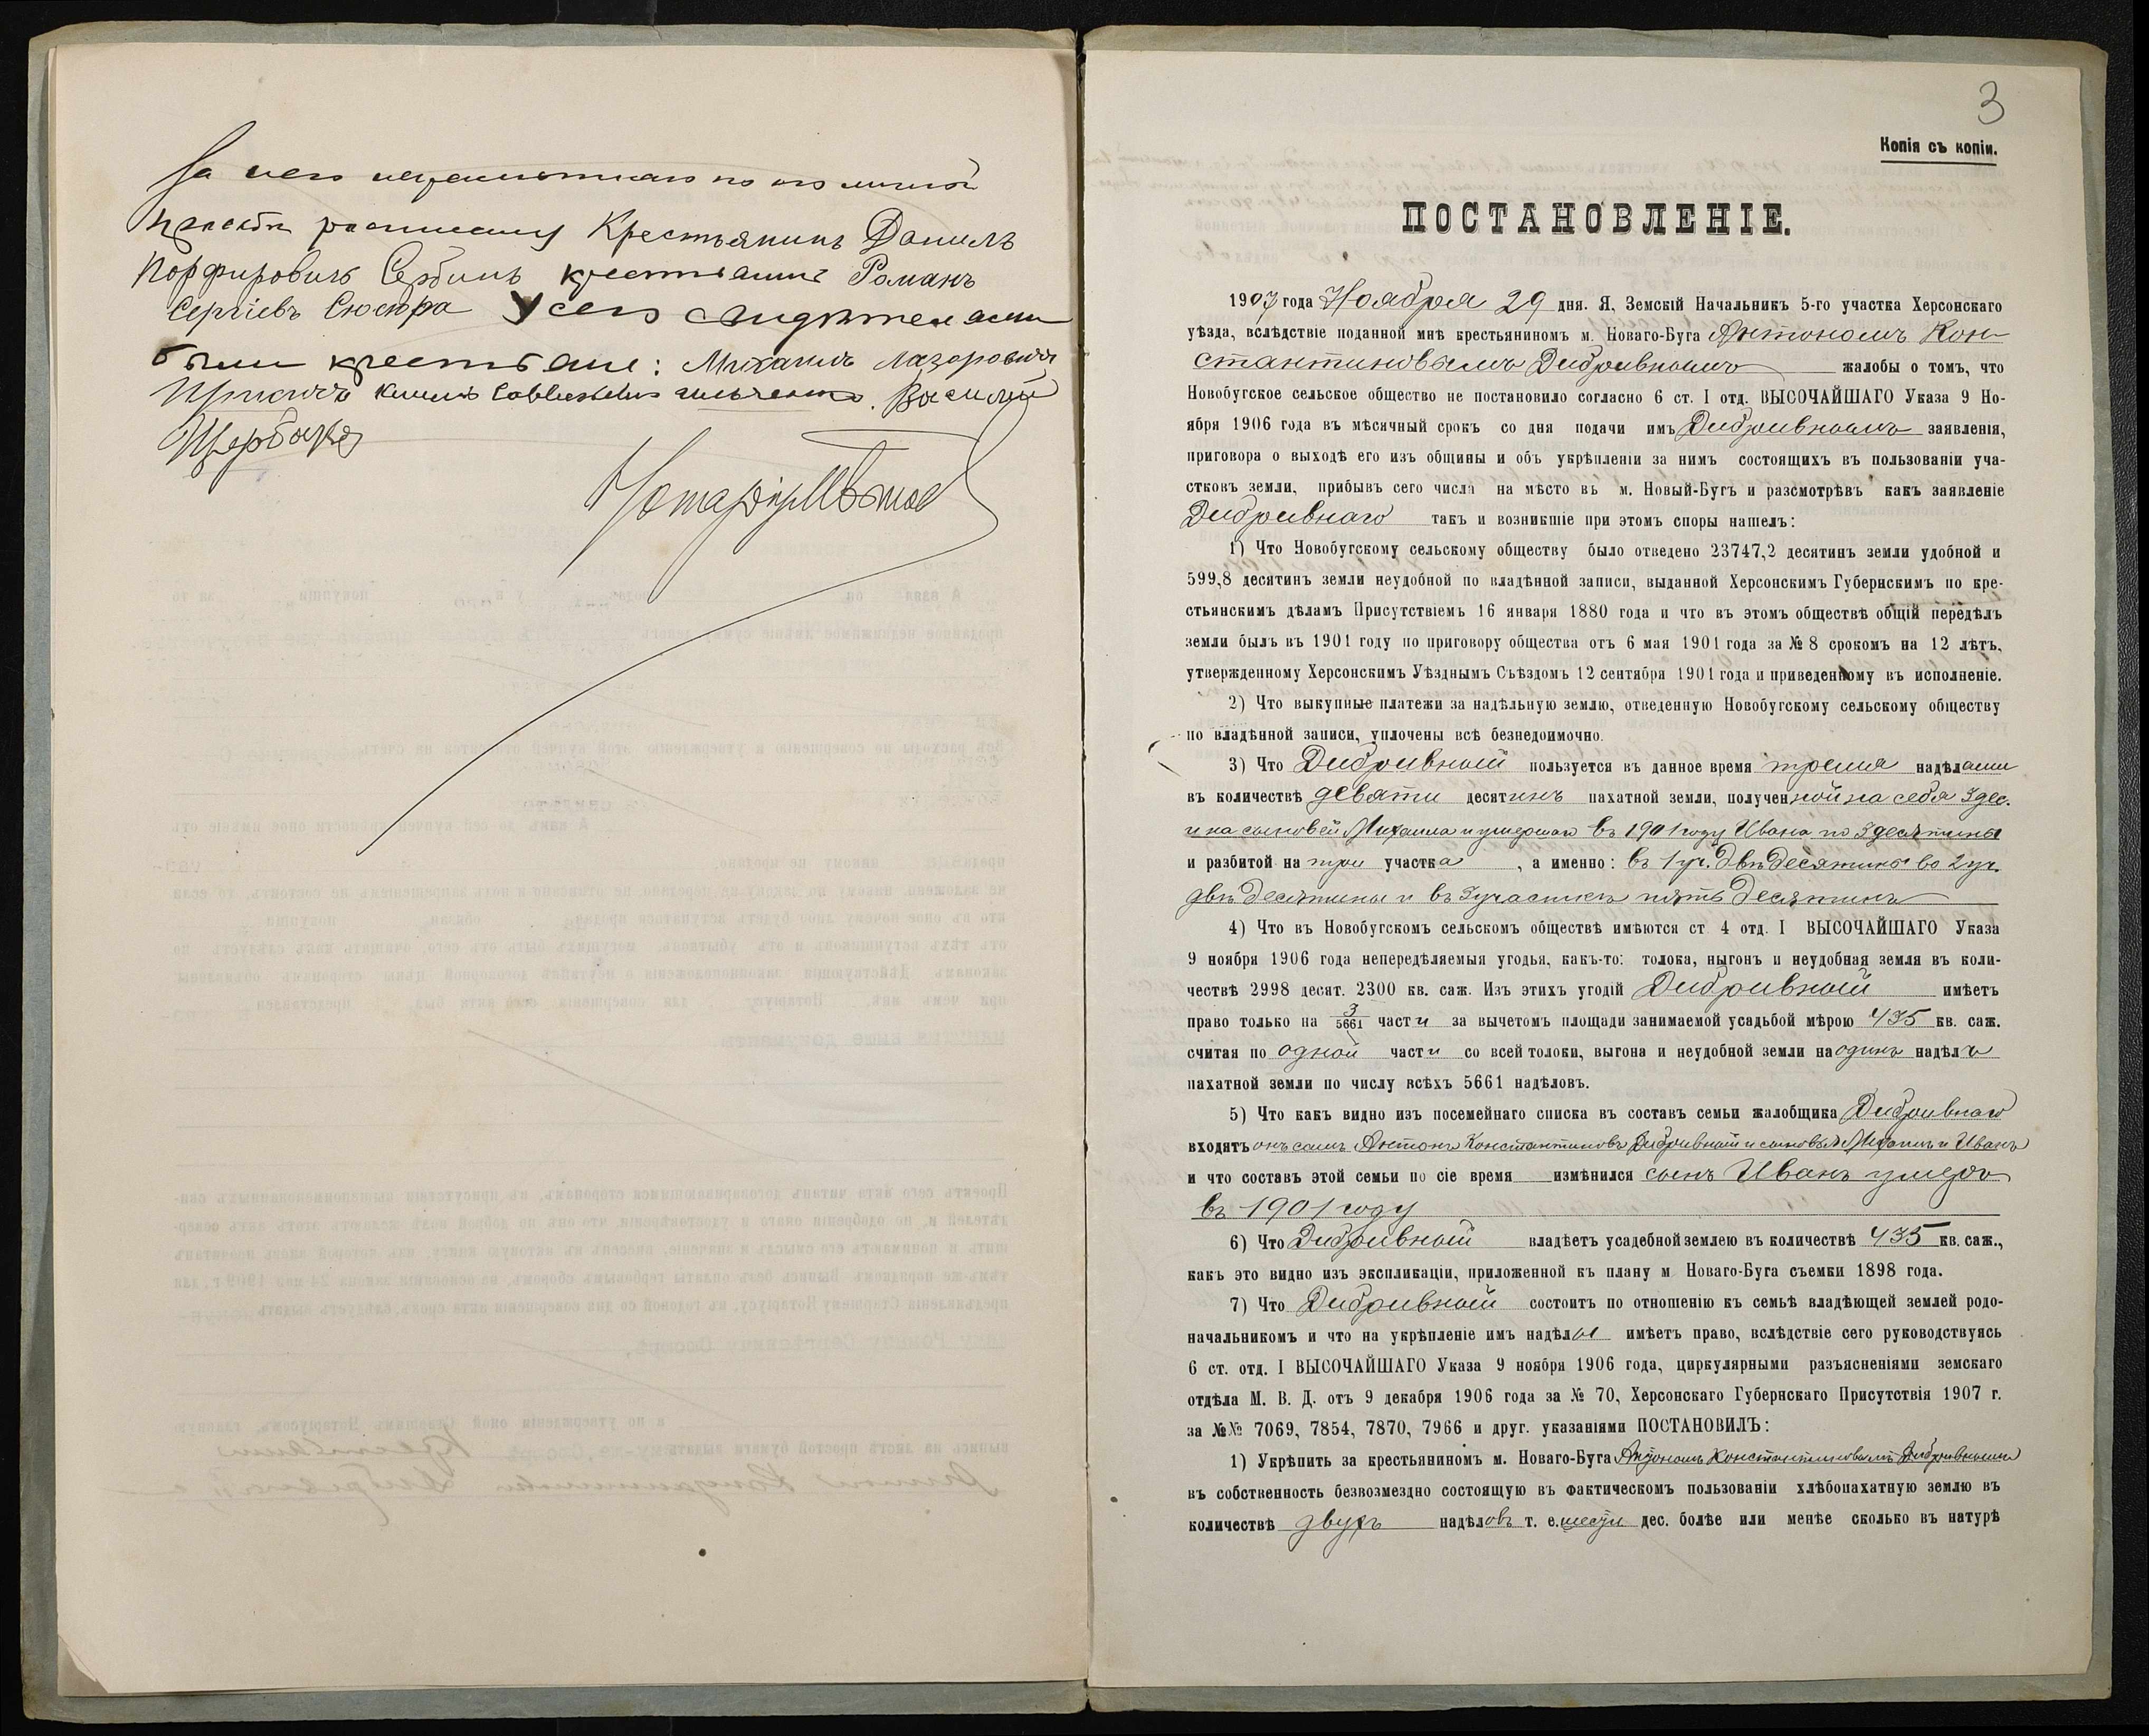 За него неграмотнаго по его личной
просьбѣ росписался Крестьянинъ Данилъ
Порфировичъ Сербинъ крестьянинъ Романъ
Сергіевъ Сюсюра У сего свидѣтелями
были крестьяне: Михаилъ Лазаровичъ
Василій
Щербаха
Нотаріусъ
3
Копія съ копіи.
ПОСТАНОВЛЕНІЕ.
1907 года Ноября 29 дня. Я, Земскій Начальникъ 5-го участка Херсонскаго
уѣзда, вслѣдствіе поданной мнѣ крестьяниномъ м. Новаго-Буга Антономъ Кон-
стантиновымъ Дибривнымъ жалобы о томъ, что
Новобугское сельское общество не постановило согласно 6 ст. I отд. ВЫСОЧАЙШАГО Указа 9 Но-
ября 1906 года въ мѣсячный срокъ со дня подачи имъ Дибривнымъ заявленія,
приговора о выходѣ его изъ общины и объ укрѣпленіи за нимъ состоящихъ въ пользованіи уча-
стковъ земли, прибывъ сего числа на мѣсто въ м. Новый-Бугъ и разсмотрѣвъ какъ заявленіе
Дибривнаго такъ и возникшіе при этомъ споры нашелъ:
1) Что Новобугскому сельскому обществу было отведено 23747,2 десятинъ земли удобной и
599,8 десятинъ земли неудобной по владѣнной записи, выданной Херсонскимъ Губернскимъ по кре-
стьянскимъ дѣламъ Присутствіемъ 16 января 1880 года и что въ этомъ обществѣ общій передѣлъ
земли былъ въ 1901 году по приговору общества отъ 6 мая 1901 года за № 8 срокомъ на 12 лѣтъ,
утвержденному Херсонскимъ Уѣзднымъ Съѣздомъ 12 сентября 1901 года и приведенному въ исполненіе.
2) Что выкупные платежи за надѣльную землю, отведенную Новобугскому сельскому обществу
по владѣнной записи, уплочены всѣ безнедоимочно.
3) Что Дибривный пользуется въ данное время тремя надѣлами
въ количествѣ девяти десятинъ пахатной земли, полученной на себя 3 дес.
и на сыновей Михаила и умершаго въ 1901 году Ивана по 3 десятины
и разбитой на три участка, а именно: въ 1 уч. двѣ десятины во 2 уч.
двѣ десятины и въ 3 участкѣ пять десятинъ
4) Что въ Новобугскомъ сельскомъ обществѣ имѣются ст. 4 отд. I ВЫСОЧАЙШАГО Указа
9 ноября 1906 года непередѣляемыя угодья, какъ-то: толока, выгонъ и неудобная земля въ коли-
чествѣ 2998 десят. 2300 кв. саж. Изъ этихъ угодій Дибривный имѣетъ
право только на 3/5661 части за вычетомъ площади занимаемой усадьбой мѣрою 435 кв. саж.
считая по одной части со всей толоки, выгона и неудобной земли на одинъ надѣлъ
пахатной земли по числу всѣхъ 5661 надѣловъ.
5) Что какъ видно изъ посемейнаго списка въ составъ семьи жалобщика Дибривнаго
входятъ онъ самъ Антонъ Константиновъ Дибривный и сыновья Михаилъ и Иванъ
и что составъ этой семьи по сіе время измѣнился сынъ Иванъ умеръ
въ 1901 году
6) Что Дибривный владѣетъ усадебной землею въ количествѣ 435 кв. саж.,
какъ это видно изъ экспликаціи, приложенной къ плану м. Новаго-Буга съемки 1898 года.
7) Что Дибривный состоитъ по отношенію къ семьѣ владѣющей землей родо-
начальникомъ и что на укрѣпленіе имъ надѣлы имѣетъ право, вслѣдствіе сего руководствуясь
6 ст. отд. I ВЫСОЧАЙШАГО Указа 9 ноября 1906 года, циркулярными разъясненіями земскаго
отдѣла М. В. Д. отъ 9 декабря 1906 года за № 70, Херсонскаго Губернскаго Присутствія 1907 г.
за №№ 7069, 7854, 7870, 7966 и друг. указаніями ПОСТАНОВИЛЪ:
1) Укрѣпить за крестьяниномъ м. Новаго-Буга Антономъ Константиновымъ Дибривнымъ
въ собственность безвозмездно состоящую въ фактическомъ пользованіи хлѣбопахатную землю въ
количествѣ двухъ надѣловъ т. е. шести дес. болѣе или менѣе сколько въ натурѣ